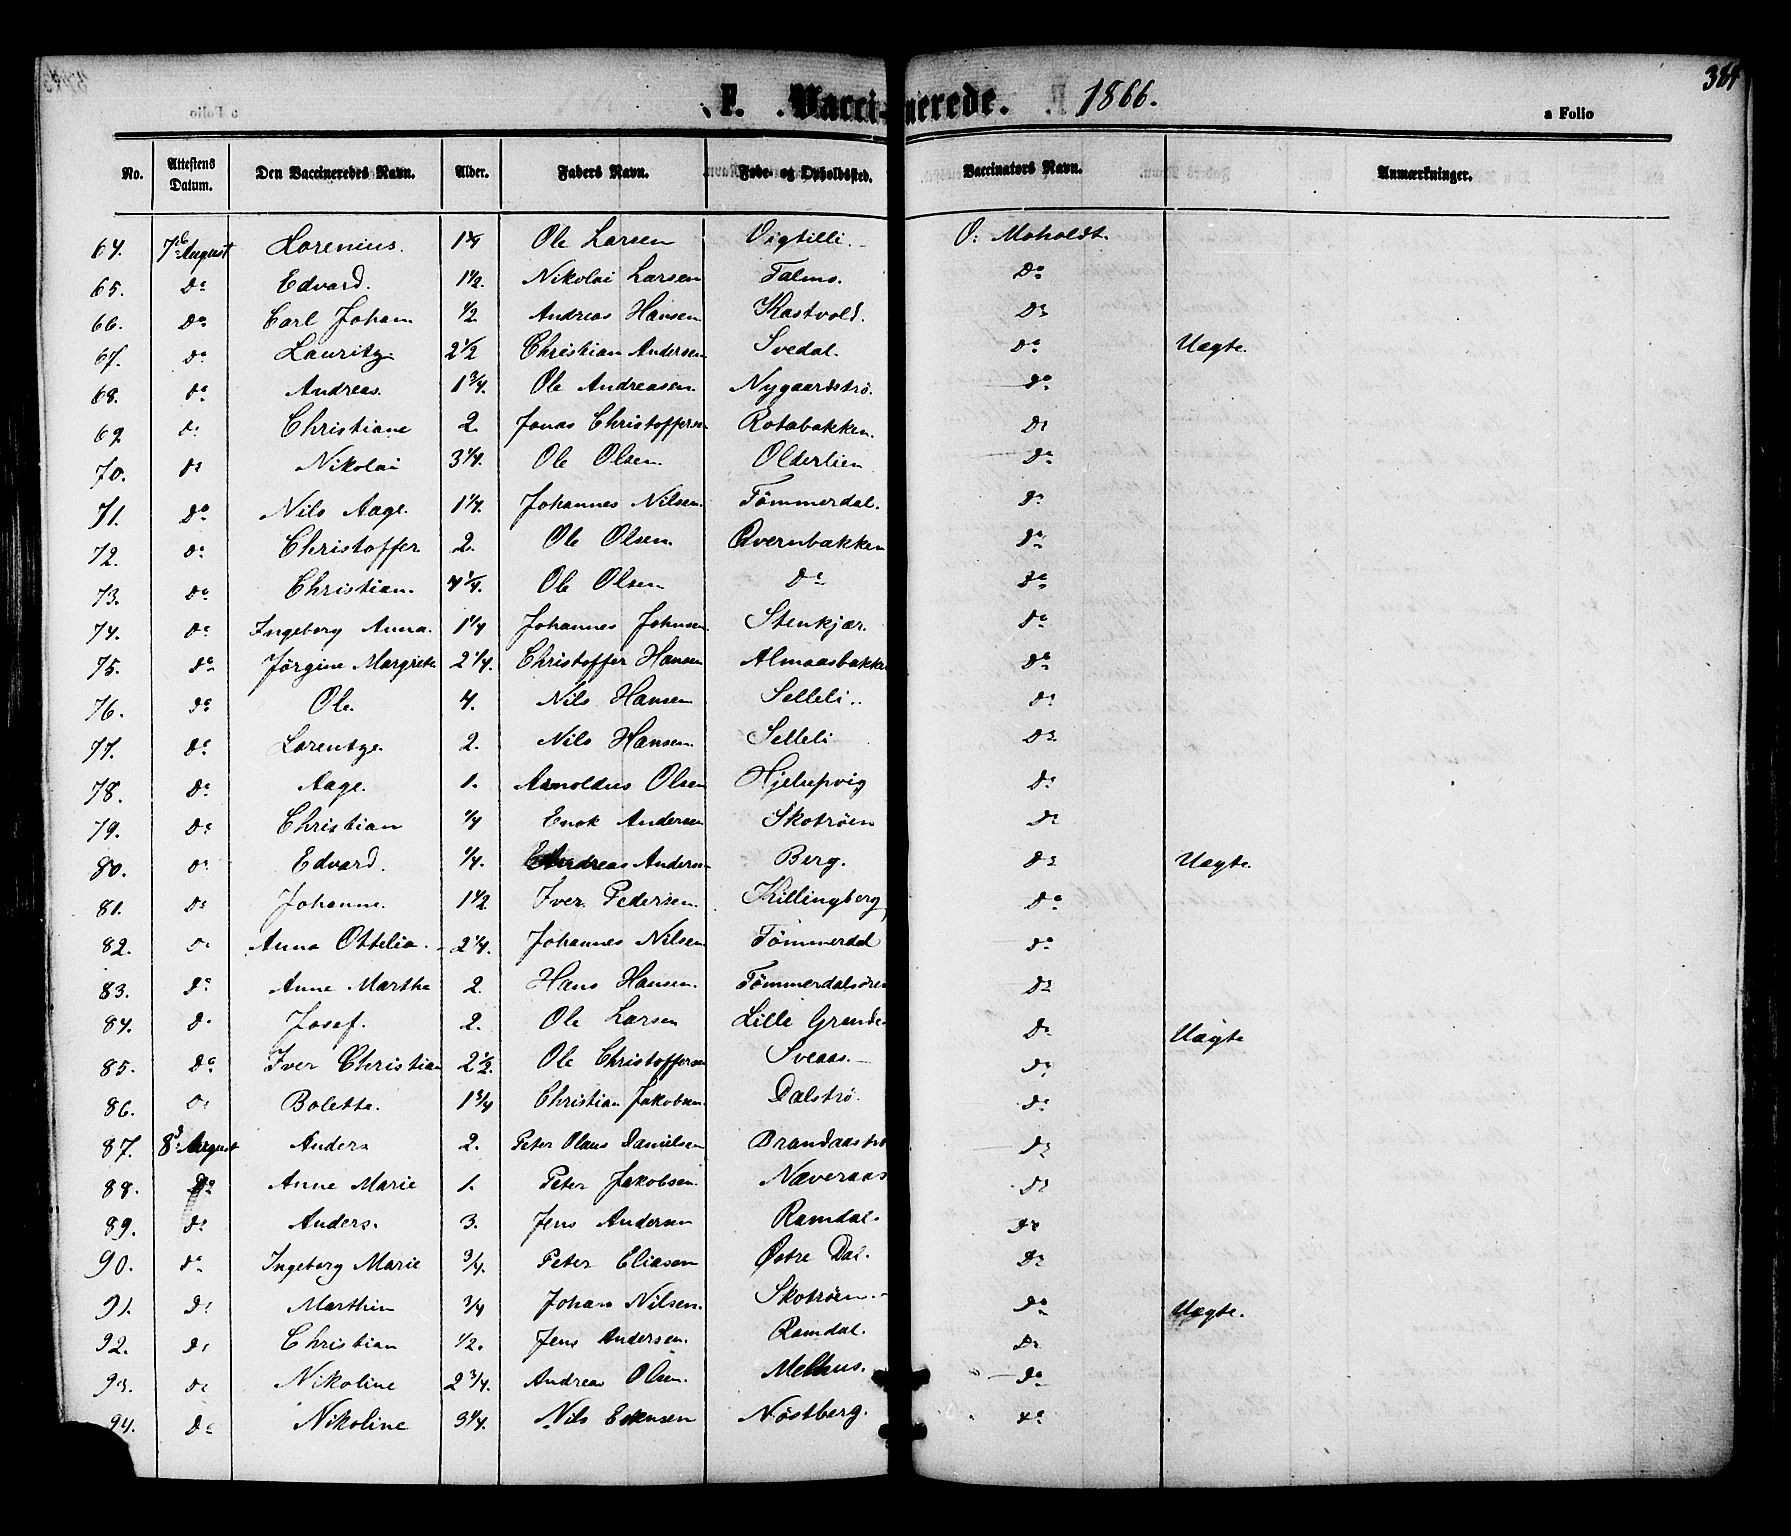 F. Vaccinerede. 1866.
a Folio
No. Attestens Datum. Den Vaccineredes Navn. Alder. Faders Navn. Føde- og Opholdssted. Vaccinators Navn. Anmærkninger.
64. 7de August Lorenius. 1 1/4 Ole Larsen Vigtilli. O: Moholdt.
65. Do Edvard. 1 1/2. Nikolai Larsen Falmo. Do
66. Do Carl Johan 1/2 Andreas Hansen Kastvold. Do
67. Do Lauritz 2 1/2 Christian Andersen Svedal. Do Uægte.
68. Do Andreas. 1 3/4. Ole Andreasen. Nygaardstrø. Do
69 Do Christiane 2. Jonas Christoffersen Rotabakken. Do
70. Do Nikolai 3 1/4. Ole Olsen. Olderlien Do
71. Do Nils Aage. 1 1/4. Johannes Nilsen. Tømmerdal. Do
72. Do Christoffer 2. Ole Olsen. Qvernbakken Do
73. Do Christian. 4 1/4. Ole Olsen Do Do
74. Do Ingeborg Anna. 1 1/4 Johannes Johnsen. Stenkjær. Do
75. Do Jørgine Margrete 2 1/4. Christoffer Hansen Almaasbakken Do
76. Do Ole. 4. Nils Hansen Selleli. Do
77. Do Lorentze. 2. Nils Hansen. Selleli Do
78. Do Aage. 1. Arnoldus Olsen Hjelupvig Do
79. Do Christian 1/4 Enok Andersen Skotrøen Do
80. Do Edvard. 1/4. Andreas Andersen Berg. Do Uægte.
81. Do Johanne. 1 1/2 Iver Pedersen. Killingberg Do
82. Do Anna Ottelia. 2 1/4. Johannes Nilsen Tømmerdal Do
83. Do Anne Martha 2. Hans Hansen. Tømmerdalsøren Do
84. Do Josef. 2. Ole Larsen Lille Grande Do Uægte
85. Do Iver Christian 2 1/2. Ole Christoffersen Sveaas. Do
86. Do Bolette. 1 3/4 Christian Jakobsen. Dalstrø. Do
87. 8de August Anders 2. Peter Olaus Danielsen Brandaastrø Do
88. Do Anne Marie 1. Peter Jakobsen. Næveraas Do
89. Do Anders. 3. Jens Andersen Ramdal. Do
90. Do Ingeborg Marie 3/4. Peter Eliasen Østre Dal. Do
91. Do Marthin 3/4 Johan Nilsen. Skotrøen. Do Uægte.
92. Do Christian 1/2. Jens Andersen. Ramdal. Do
93. Do Nikoline 2 3/4. Andreas Olsen. Melhus. Do
94. Do Nikoline 3 1/4. Nils Nøstberg. Do